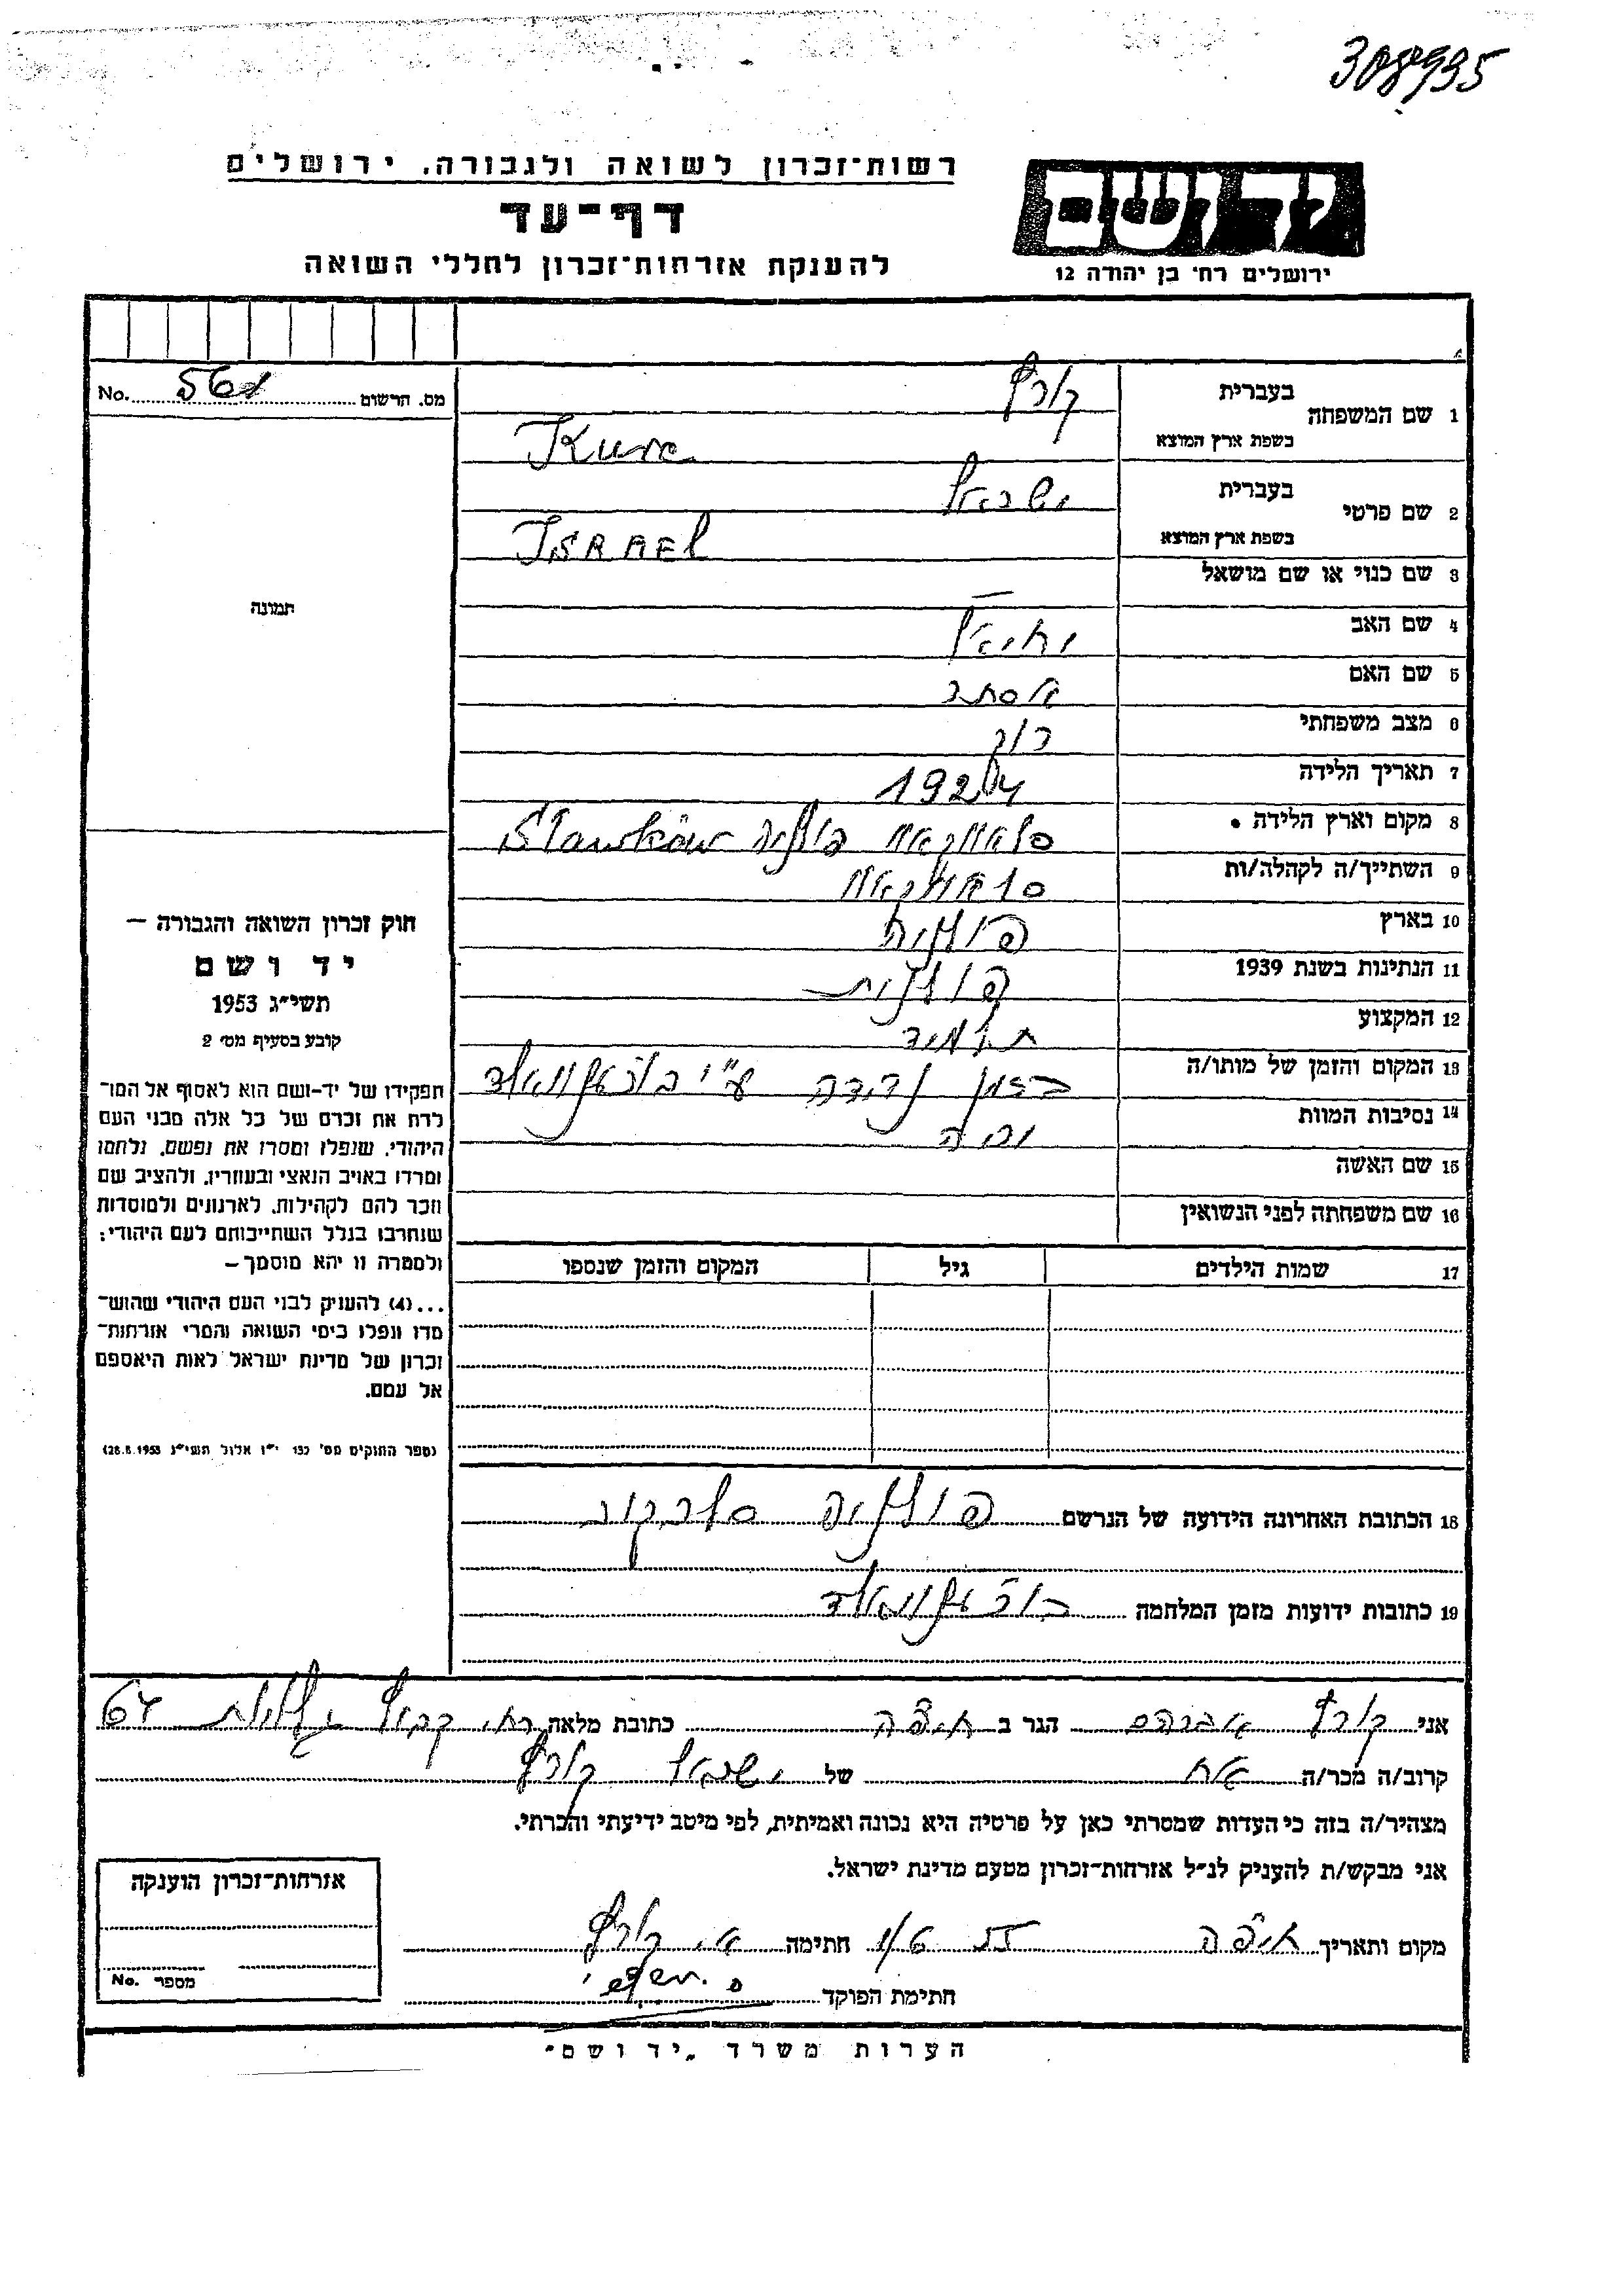 308995
רשות־זכרון לשואה ולגבורה, ירושלים
דף־עד
להענקת אזרחות־זכרון לחללי השואה
יד ושם
ירושלים רח' בן יהודה 12
מס. הרשום No. 561
1 שם המשפחה בעברית קורץ
בשפת ארץ המוצא Kurc
2 שם פרטי בעברית ישראל
בשפת ארץ המוצא ISRAEL
3 שם כנוי או שם מושאל —
4 שם האב יחיאל
5 שם האם אסתר
6 מצב משפחתי רוק
7 תאריך הלידה 1924
8 מקום וארץ הלידה פולניה Sławków
9 השתייך/ה לקהלה/ות
10 בארץ פולניה
11 הנתינות בשנת 1939 פולנית
12 המקצוע תלמיד
13 המקום והזמן של מותו/ה בזמן נדידה ע"י
14 נסיבות המוות
15 שם האשה
16 שם משפחתה לפני הנשואין
17 שמות הילדים גיל המקום והזמן שנספו
תמונה
חוק זכרון השואה והגבורה —
יד ושם
תשי"ג 1953
קובע בסעיף מס' 2
תפקידו של יד-ושם הוא לאסוף אל המו־
לדת את זכרם של כל אלה מבני העם
היהודי, שנפלו ומסרו את נפשם, נלחמו
ומרדו באויב הנאצי ובעוזריו, ולהציב שם
וזכר להם לקהילות, לארגונים ולמוסדות
שנחרבו בגלל השתייכותם לעם היהודי;
ולמטרה זו יהא מוסמך —
...(4) להעניק לבני העם היהודי שהוש־
מדו ונפלו בימי השואה והמרי אזרחות־
זכרון של מדינת ישראל לאות היאספם
אל עמם.
(ספר החוקים מס' 132 י"ז אלול תשי"ג 28.8.1953)
18 הכתובת האחרונה הידועה של הנרשם פולניה
19 כתובות ידועות מזמן המלחמה
אני קורץ אברהם הגר ב חיפה כתובת מלאה רח. גלויות 67
קרוב/ה מכר/ה אח של ישראל קורץ
מצהיר/ה בזה כי העדות שמסרתי כאן על פרטיה היא נכונה ואמיתית, לפי מיטב ידיעתי והכרתי.
אני מבקש/ת להעניק לנ"ל אזרחות־זכרון מטעם מדינת ישראל.
מקום ותאריך חיפה חתימה א. קורץ
חתימת הפוקד
אזרחות־זכרון הוענקה
מספר No.
הערות משרד „יד ושם"